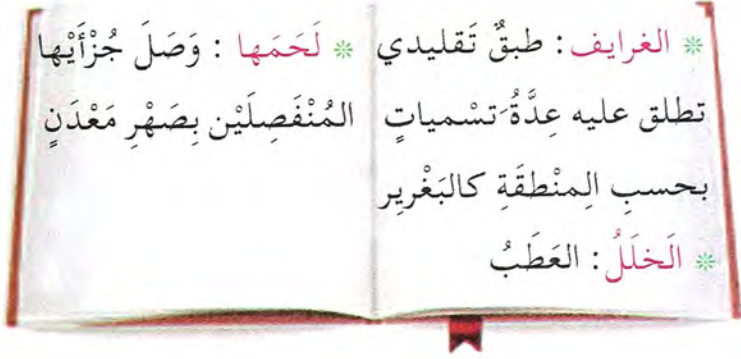 * الغرايف : طبقٌ تَقليدي
تطلق عليه عِدَّةُ َتسْمياتٍ
بحسبِ الِمنْطقَةِ كالبَغْرير
* الَخلَلُ : العَطَبُ
* لَحَمَها : وَصَلَ جُزْأَيْها
المُنْفَصِلَيْن بِصَهْرِ مَعْدَنٍ